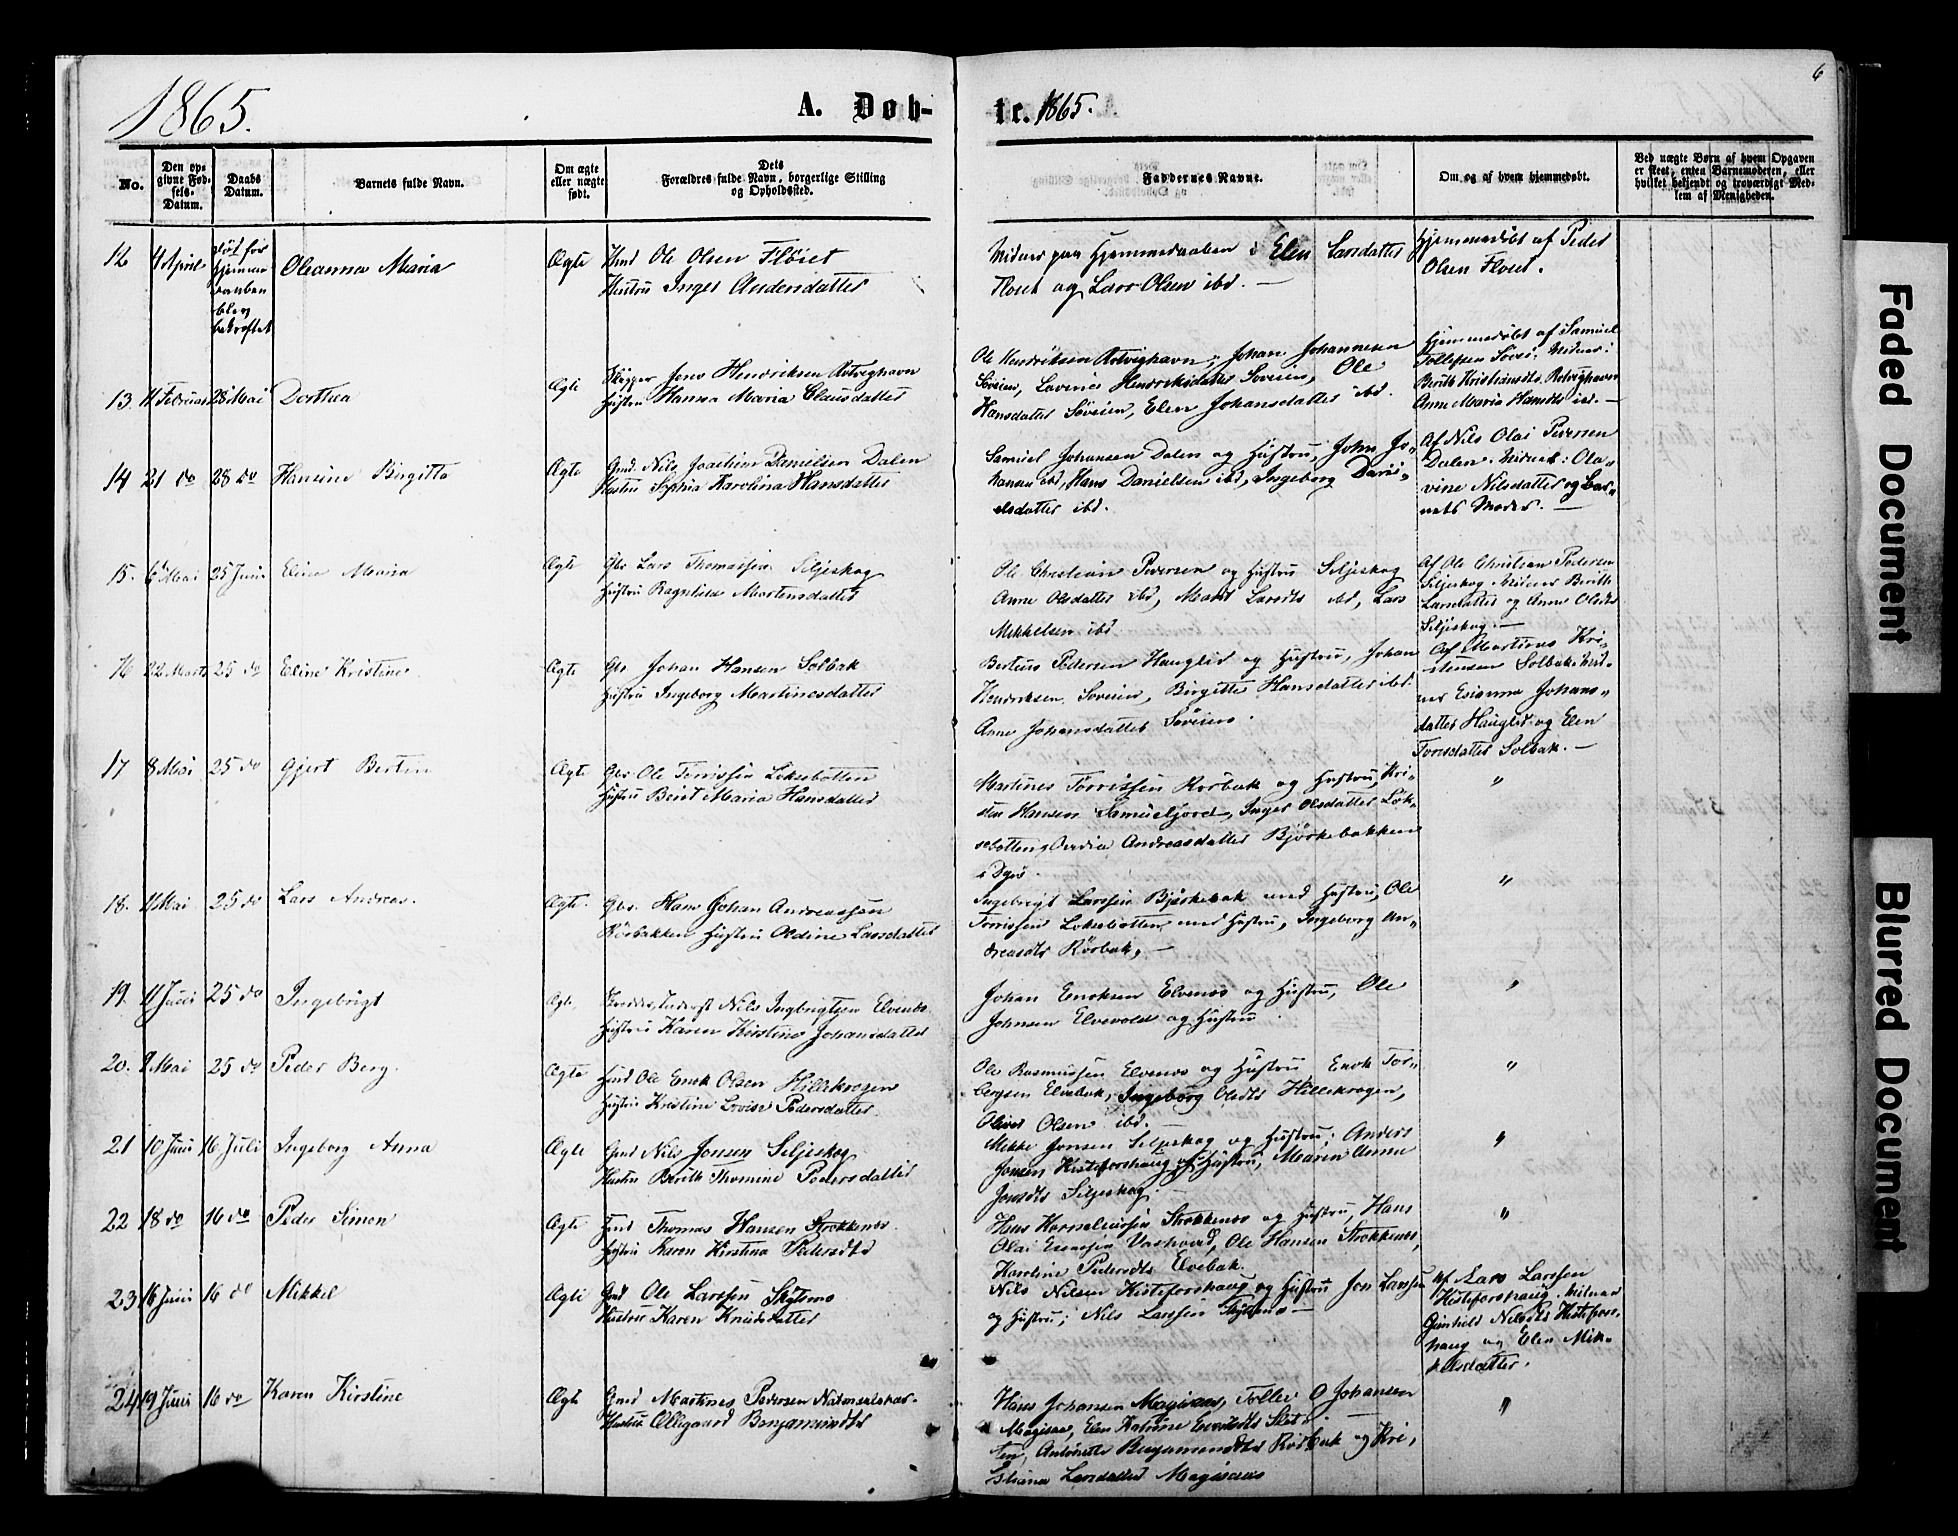 1865.
A. Døb-
te. 1865.
6
No.
Den op-
givne Fød-
sels-
Datum.
Daabs
Datum.
Barnets fulde Navn.
Om ægte
eller uægte
født.
Dets
Forældres fulde Navn, borgerlige Stilling
og Opholdssted.
Faddernes Navne.
Om og af hvem hjemmedøbt.
Ved uægte Børn af hvem Opgaven
er skeet, enten Barnemoderen, eller
hvilket bekjendt og troværdigt Med-
lem af Menigheden.
12 4 April død før
hjemme
daaben
blev
bekræftet
Oleanna Maria Ægte Ind Ole Olsen Fløiet
Hustru Inger Andersdatter
Vidner paa Hjemmedaaben : Elen Larsdatter
Floiet og Lars Olsen ibd. —
Hjemmedøbt af Peder
Olsen Floiet.
13. 11 Februar 28 Mai Dorthea Ægte Skipper Jens Hendriksen Rotvighavn
Hustru Hanna Maria Clausdatter
Ole Hendriksen Rotvighavn, Johan Johannesen
Søveien, Lovine Hendriksdatter Soveien, Ole
Hansdatter Søveien, Elen Johansdatter ibd.
Hjemmedøbt af Samuel
Tollefsen Søvei. Vidner:
Berith Kristiansdtr Rotvighavn
Anne Maria Hansdtr ibd. —
14 21 do 28 do Hansine Birgitta Ægte Gmd. Nils Joachim Danielsen Dalen
Hustru Sophia Karolina Hansdatter
Samuel Johansen Dalen og Hustru, John Jo-
hansen ibd, Hans Danielsen ibd, Ingeborg Dani-
elsdatter ibd.
Af Nils Olai Pedersen
Dalen. Vidner: Ola-
vine Nilsdatter og Bar-
nets Moder. —
15. 6 Mai 25 Juni Eline Maria Ægte Gbr Lars Thomassen Seljeskog
Hustru Ragnhild Mortensdatter
Ole Christian Pedersen og Hustru Seljeskog
Anne Olsdatter ibd, Marit Larsdtr ibd, Lars
Mikkelsen ibd.
Af Ole Christian Pedersen
Seljeskog. Vidner Berith
Larsdatter og Anne Olsdtr
Seljeskog. —
16 22 Marts 25 do Eline Kristine Ægte Gbr Johan Hansen Solbak
Hustru Ingeborg Martinesdatter
Bertius Pedersen Hauglid og Hustru, Johan
Hendriksen Soveien, Birgitte Hansdatter ibd.
Anne Johansdatter Søveien.
Af Martinus Kri-
stensen Solbak. Vid-
ner Esianna Johans-
datter Hauglid og Elen
Torrisdatter Solbak. —
17 8 Mai 25 do Gjert Bertin Ægte Gbr Ole Torrissen Loksebotten
Hustru Berit Maria Hansdatter
Martines Torrissen Rørbak og Hustru, Kri-
sten Hansen Samueljord, Inger Olsdatter Lok-
sebotten, Andreasdatter Bjørkebakken
i Dyrø.
"
18. 11 Mai 25 do Lars Andreas. Ægte. Gbr. Hans Johan Andreassen
Rörbakken Hustru Oldine Larsdatter
Ingebrigt Larssen Bjørkebak med Hustru, Ole
Torrissen Loksebotten med Hustru, Ingeborg An-
dreasdtr Rörbak, —
"
19. 11 Juni 25 do Ingebrigt Ægte Inderst Nils Ingbrigtsen Elvenes
Hustru Karen Kirstine Johansdatter
Johan Enoksen Elvenes og Hustru, Ole
Johnsen Elvevold og Hustru.
"
20. 9 Mai 25 do Peder Berg. Ægte Ind Ole Enok Olsen Hillekrogen
Hustru Kristine Lovise Pedersdatter
Ole Rasmussen Elvenes og Hustru Enok Tor-
bergsen Elvebak, Ingeborg Olsdtr Hillekrogen,
Oliver Olsen ibd. —
"
21 10 Juni 16 Juli Ingeborg Anna Ægte Gmd Nils Jonsen Seljeskog
Hustru Berith Thomine Pedersdatter
Mikke Jonsen Seljeskog og Hustru; Anders
Jonsen Kisteforshaug og Hustru, Maren Anne
Jonsdtr Seljeskog.
"
22 18 do 16 do Peder Simon Ægte Ind Thomas Hansen Stokkenes.
Hustru Karen Kirstina Pedersdtr
Hans Korneliussen Stokkenes og Hustru, Hans
Olai Ole Hansen Stokkenes,
Karoline Pedersdtr Elvebak.
"
23 16 Juni 16 do Mikkel Ægte Gmd Ole Larssen Skytsmo
Hustru Karen Knudsdatter
Nils Nilsen Kisteforshaug og Hustru Jon Larssen
og Hustru; Nils Larssen —
Af Lars Larssen
Kisteforshaug. Vidner
Gunhild Nilsdtr Kistefors-
haug og Elen Mik-
kelsdatter.
24 19 Juni 16 do Karen Kirstine Ægte Gmd Martines Pedersen
Hustru Ollegaard Benjamindtr
Hans Johansen Magisnes, Tollef O Johansen
Magisnes, Elen Katrine
Benjamindtr Rørbak og Kri-
stiana Larsdatter Magisnes
"
Faded Document
Blurred Document